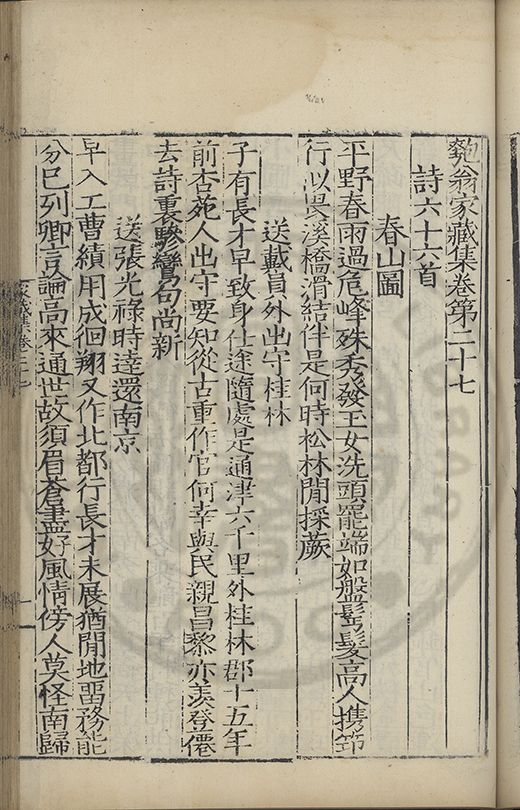 匏翁家藏集卷第二十七
詩六十六首
春山圖
平野春雨過危峰殊秀發玉女洗頭罷端如盤髻髮高人携笻
行以畏溪橋滑結伴是何時松林閒採蕨
送戴員外出守桂林
子有長才早致身仕途隨處是通津六千里外桂林郡十五年
前杏苑人出守要知從古重作官何幸與民親昌黎亦羨登僊
去詩裏驂鸞句尚新
送張光祿時逵還南京
早入工曹績用成徊翔又作北都行長才未展猶閒地畱務能
分巳列卿言論高來通世故須眉蒼盡好風情傍人莫怪南歸